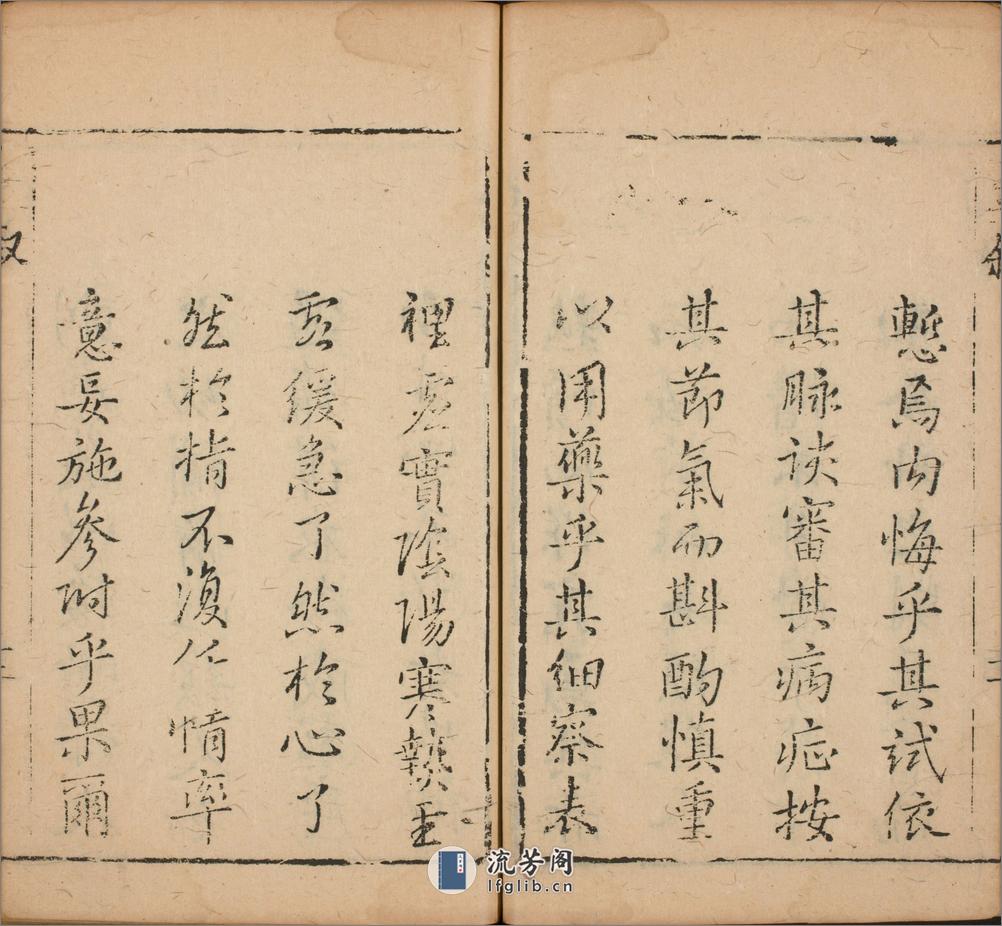 慙焉内悔乎其試依
其脉訣審其病症按
其節氣而斟酌慎重
以用藥乎其細察表
裡虛實陰陽寒熱主
緩急了然於心了
然於指不復任情率
意妄施參附乎果爾
流芳阁
lfglib.cn